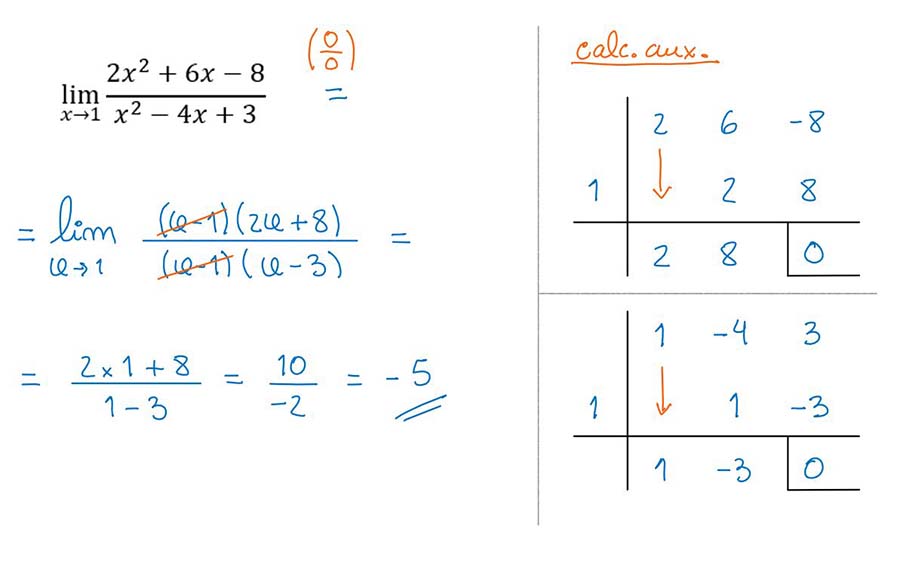 lim x→1 (2x² + 6x − 8)/(x² − 4x + 3) (0/0) =
= lim x→1 ((x-1)(2x+8))/((x-1)(x-3)) =
= (2×1+8)/(1-3) = 10/-2 = -5
calc. aux.
2 6 -8
1 ↓ 2 8
2 8 0
1 -4 3
1 ↓ 1 -3
1 -3 0